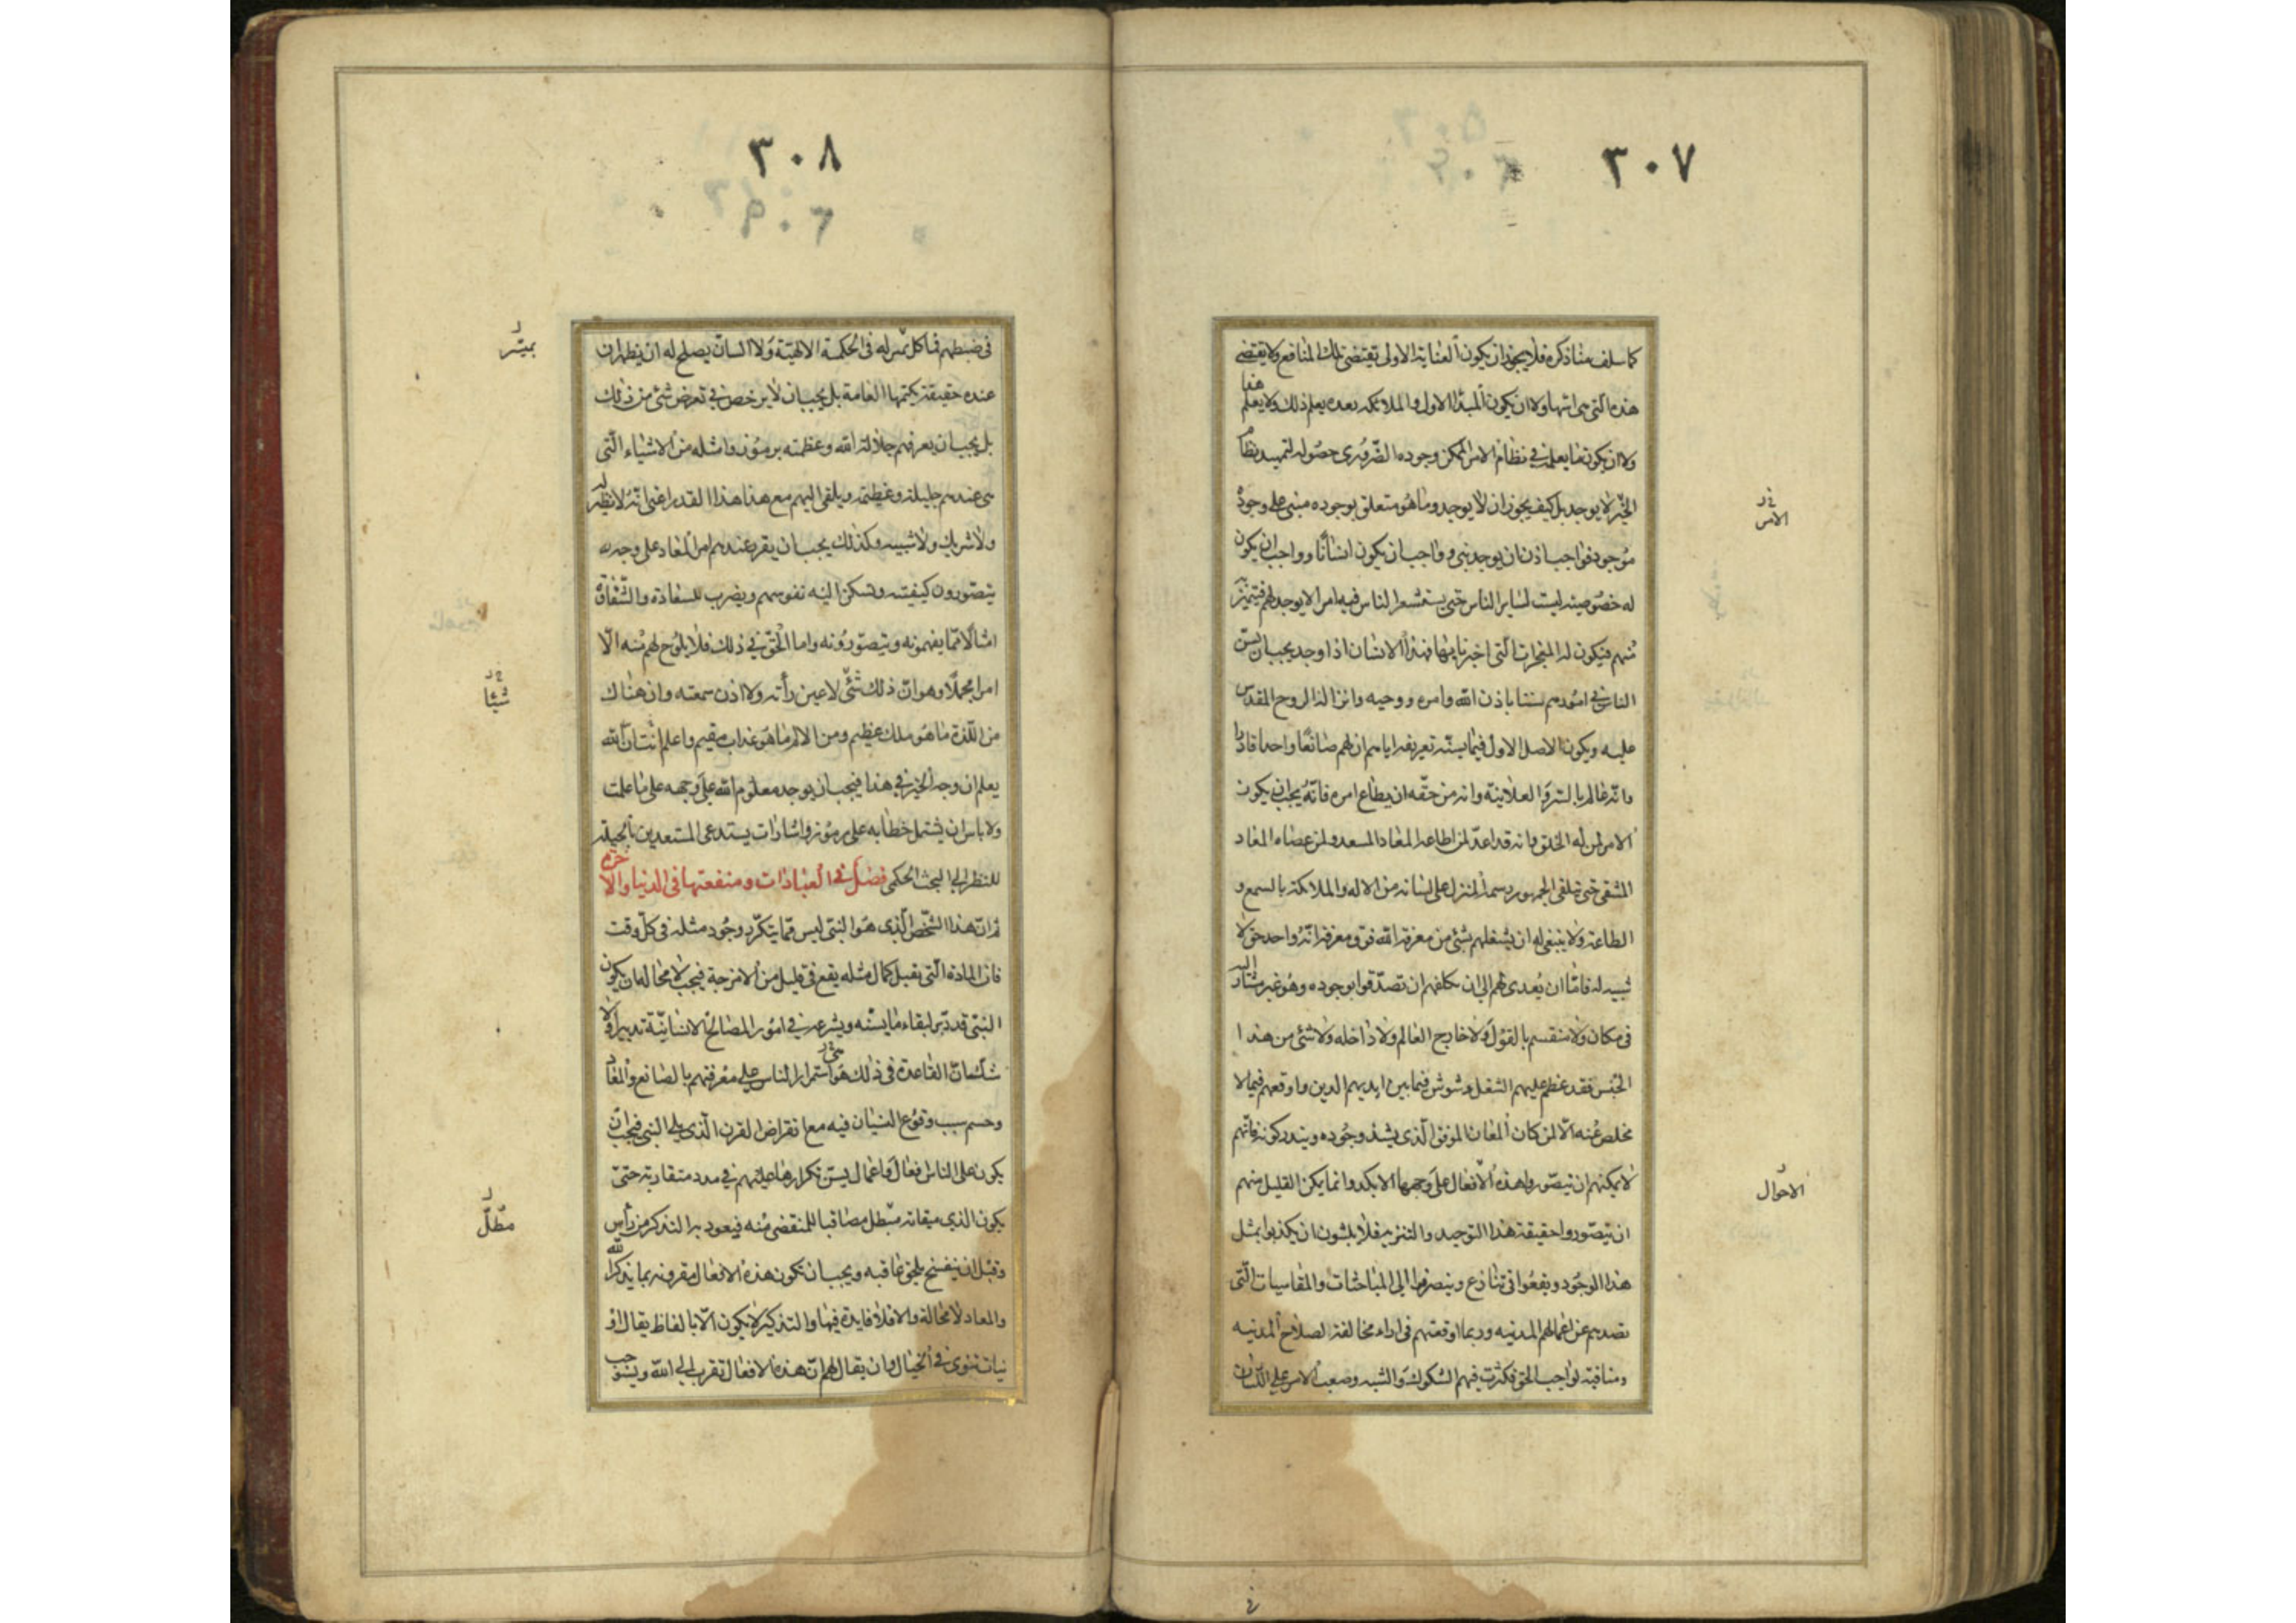 ٣٠٧
كما سلف منا ذكره فلا يجوز ان يكون العناية الاولى تقتضى تلك المنافع ولا يقتضى
هذه التى هى اسها ولا ان يكون المبدأ الاول والملائكة بعده يعلم ذلك ولا يعلم هذا
ولا ان يكون ما يعلمه في نظام الامر الممكن وجوده الضرورى حصوله لتمهيد نظام
الخير لا يوجد بل كيف يجوز ان لا يوجد وما هو متعلق بوجوده مبنى على وجوده
موجود فواجب اذن ان يوجد نبى وواجب ان يكون انسانا وواجب ان يكون
له خصوصية ليست لساير الناس حتى يستشعر الناس فيه امرا لا يوجد لهم فيتميز
منهم فيكون له المعجزات التى اخبرنا بها فهذا الانسان اذا وجد يجب ان يسن
للناس في امورهم سننا باذن الله وامره ووحيه وانزاله الروح المقدس
عليه ويكون الاصل الاول فيما يسنه تعريفه اياهم ان لهم صانعا واحدا قادرا
وانه عالم بالسر والعلانية وانه من حقه ان يطاع امره فانه يجب ان يكون
الامر لمن له الخلق وانه قد اعد لمن اطاعه المعاد المسعد ولمن عصاه المعاد
المشقى حتى تتلقى الجمهور رسمه المنزل على لسانه من الاله والملائكة بالسمع و
الطاعة ولا ينبغى له ان يشغلهم بشئ من معرفة الله فوق معرفة انه واحد حق لا
شبيه له فاما ان يعدى لهم الى ان يكلفهم ان تصدقوا بوجوده وهو غير مشار اليه
فى مكان ولا منقسم بالقول ولا خارج العالم ولا داخله ولا شئ من هذا ا
الجنس فقد عظم عليهم الشغل وشوش فيما بين ايديهم الدين واوقعهم فيما لا
مخلص عنه الا لمن كان المعان الموفق الذى يشذ وجوده ويندر كونه فانهم
لا يمكنهم ان تيصوروا هذه الافعال على وجهها الا بكد وانما يمكن القليل منهم
ان تيصوروا حقيقة هذا التوحيد والتنزيه فلا يلبثون ان يكذبوا بمثل
هذا الوجود ويقعوا فى تنازع وينصرفوا الى المباحثات والمقاسيات التى
تصدهم عن اعمالهم المدنيه وربما اوقعتهم فى اراء مخالفة لصلاح المدنيه
ومنافية لواجب الحق فكثرت فيهم الشكوك والشبه وصعب الامر على اللسان
الامر
الاحوال
٣٠٨
فى ضبطهم فما كل بميسر له فى الحكمة الالهية ولا السان يصلح له ان يظهر ان
عنده حقيقة يكتمها العامة بل يجب ان لا يرخص في تعرض شئ من ذلك
بل يجب ان يعرفهم جلالة الله وعظمته برموز وامثله من الاشياء التى
هى عندهم جليلة وعظيمة ويلقى اليهم مع هذا هذا القدر اعنى انه لا نظير له
ولا شريك ولا شبيه وكذلك يجب ان يقرر عندهم امر المعاد على وجه
يتصورون كيفيته وتسكن اليه نفوسهم ويضرب للسعادة والشقاوة
امثالا مما يفهمونه وتيصورونه واما الحق في ذلك فلا يلوح لهم منه الا
امرا مجملا وهو ان ذلك شئ لا عين رأته ولا اذن سمعته وان هناك
من اللذة ما هو ملك عظيم ومن الالم ما هو عذاب مقيم واعلم انت ان الله
يعلم ان وجه الخير في هذا فيجب ان يوجد معلوم الله على وجهه على ما علمت
ولا باس ان يشتمل خطابه على رموز واشارات يستدعى المستعدين بالجبلة
للنظر الى البحث الحكمى فصل في العبادات ومنفعتها فى الدنيا والاخرة
ثم ان هذا الشخص الذى هو النبى ليس مما يتكرر وجود مثله فى كل وقت
فان المادة التى تقبل كمال مثله يقع فى قليل من الامزجة فيجب لا محالة ان يكون
النبى قد دبر لبقاء ما يسنه ويشرعه في امور المصالح الانسانية تدبيرا ولا
شك ان القاعدة فى ذلك هو استمرار الناس على معرفتهم بالصانع والمعاد
وحسم سبب وقوع النسيان فيه مع انقراض القرن الذى يلى النبى فيجب ان
يكون على الناس افعال واعمال يسن تكرارها عليهم في مدد متقاربة حتى
يكون الذى ميقاته مبطل مصاقبا للمنقضى منه فيعود به التذكر من رأس
وقبل ان ينفسخ يلحق عاقبه ويجب ان تكون هذه الافعال مقرونة بما يذكر الله
والمعاد لا محالة والا فلا فايدة فيها والتذكير لا يكون الا بالفاظ يقال او
نيات تنوى في الخيال وان يقال لهم ان هذه الافعال تقرب الى الله ويستوجب
بميسر
شيئا
مطل